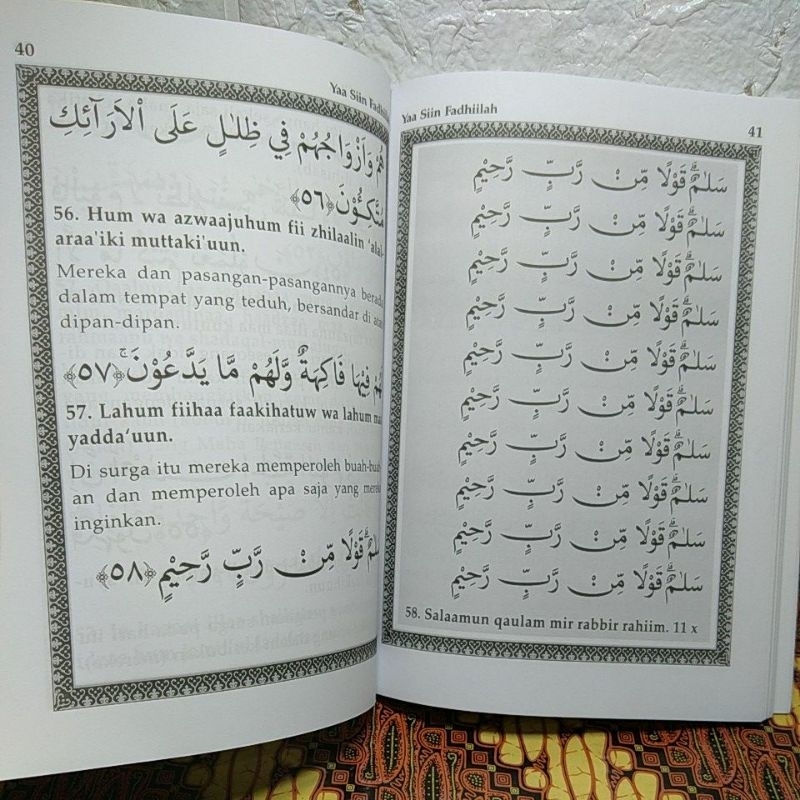 40
Yaa Siin
هُمْ وَأَزْوَاجُهُمْ فِي ظِلٰلٍ عَلَى الْأَرَآئِكِ
مُتَّكِـُٔوْنَ ﴿٥٦﴾
56. Hum wa azwaajuhum fii zhilaalin ‘alal-
araa'iki muttaki'uun.
Mereka dan pasangan-pasangannya berada
dalam tempat yang teduh, bersandar di
dipan-dipan.
لَهُمْ فِيْهَا فَاكِهَةٌ وَّلَهُمْ مَّا يَدَّعُوْنَ ۚ ﴿٥٧﴾
57. Lahum fiihaa faakihatuw wa lahum
yadda‘uun.
Di surga itu mereka memperoleh buah-
an dan memperoleh apa saja yang
inginkan.
سَلٰمٌ ۗ قَوْلًا مِّنْ رَّبٍّ رَّحِيْمٍ ﴿٥٨﴾
Yaa Siin Fadhiilah
41
سَلٰمٌ ۗ قَوْلًا مِّنْ رَّبٍّ رَّحِيْمٍ
سَلٰمٌ ۗ قَوْلًا مِّنْ رَّبٍّ رَّحِيْمٍ
سَلٰمٌ ۗ قَوْلًا مِّنْ رَّبٍّ رَّحِيْمٍ
سَلٰمٌ ۗ قَوْلًا مِّنْ رَّبٍّ رَّحِيْمٍ
سَلٰمٌ ۗ قَوْلًا مِّنْ رَّبٍّ رَّحِيْمٍ
سَلٰمٌ ۗ قَوْلًا مِّنْ رَّبٍّ رَّحِيْمٍ
سَلٰمٌ ۗ قَوْلًا مِّنْ رَّبٍّ رَّحِيْمٍ
سَلٰمٌ ۗ قَوْلًا مِّنْ رَّبٍّ رَّحِيْمٍ
سَلٰمٌ ۗ قَوْلًا مِّنْ رَّبٍّ رَّحِيْمٍ
سَلٰمٌ ۗ قَوْلًا مِّنْ رَّبٍّ رَّحِيْمٍ
58. Salaamun qaulam mir rabbir rahiim. 11 x